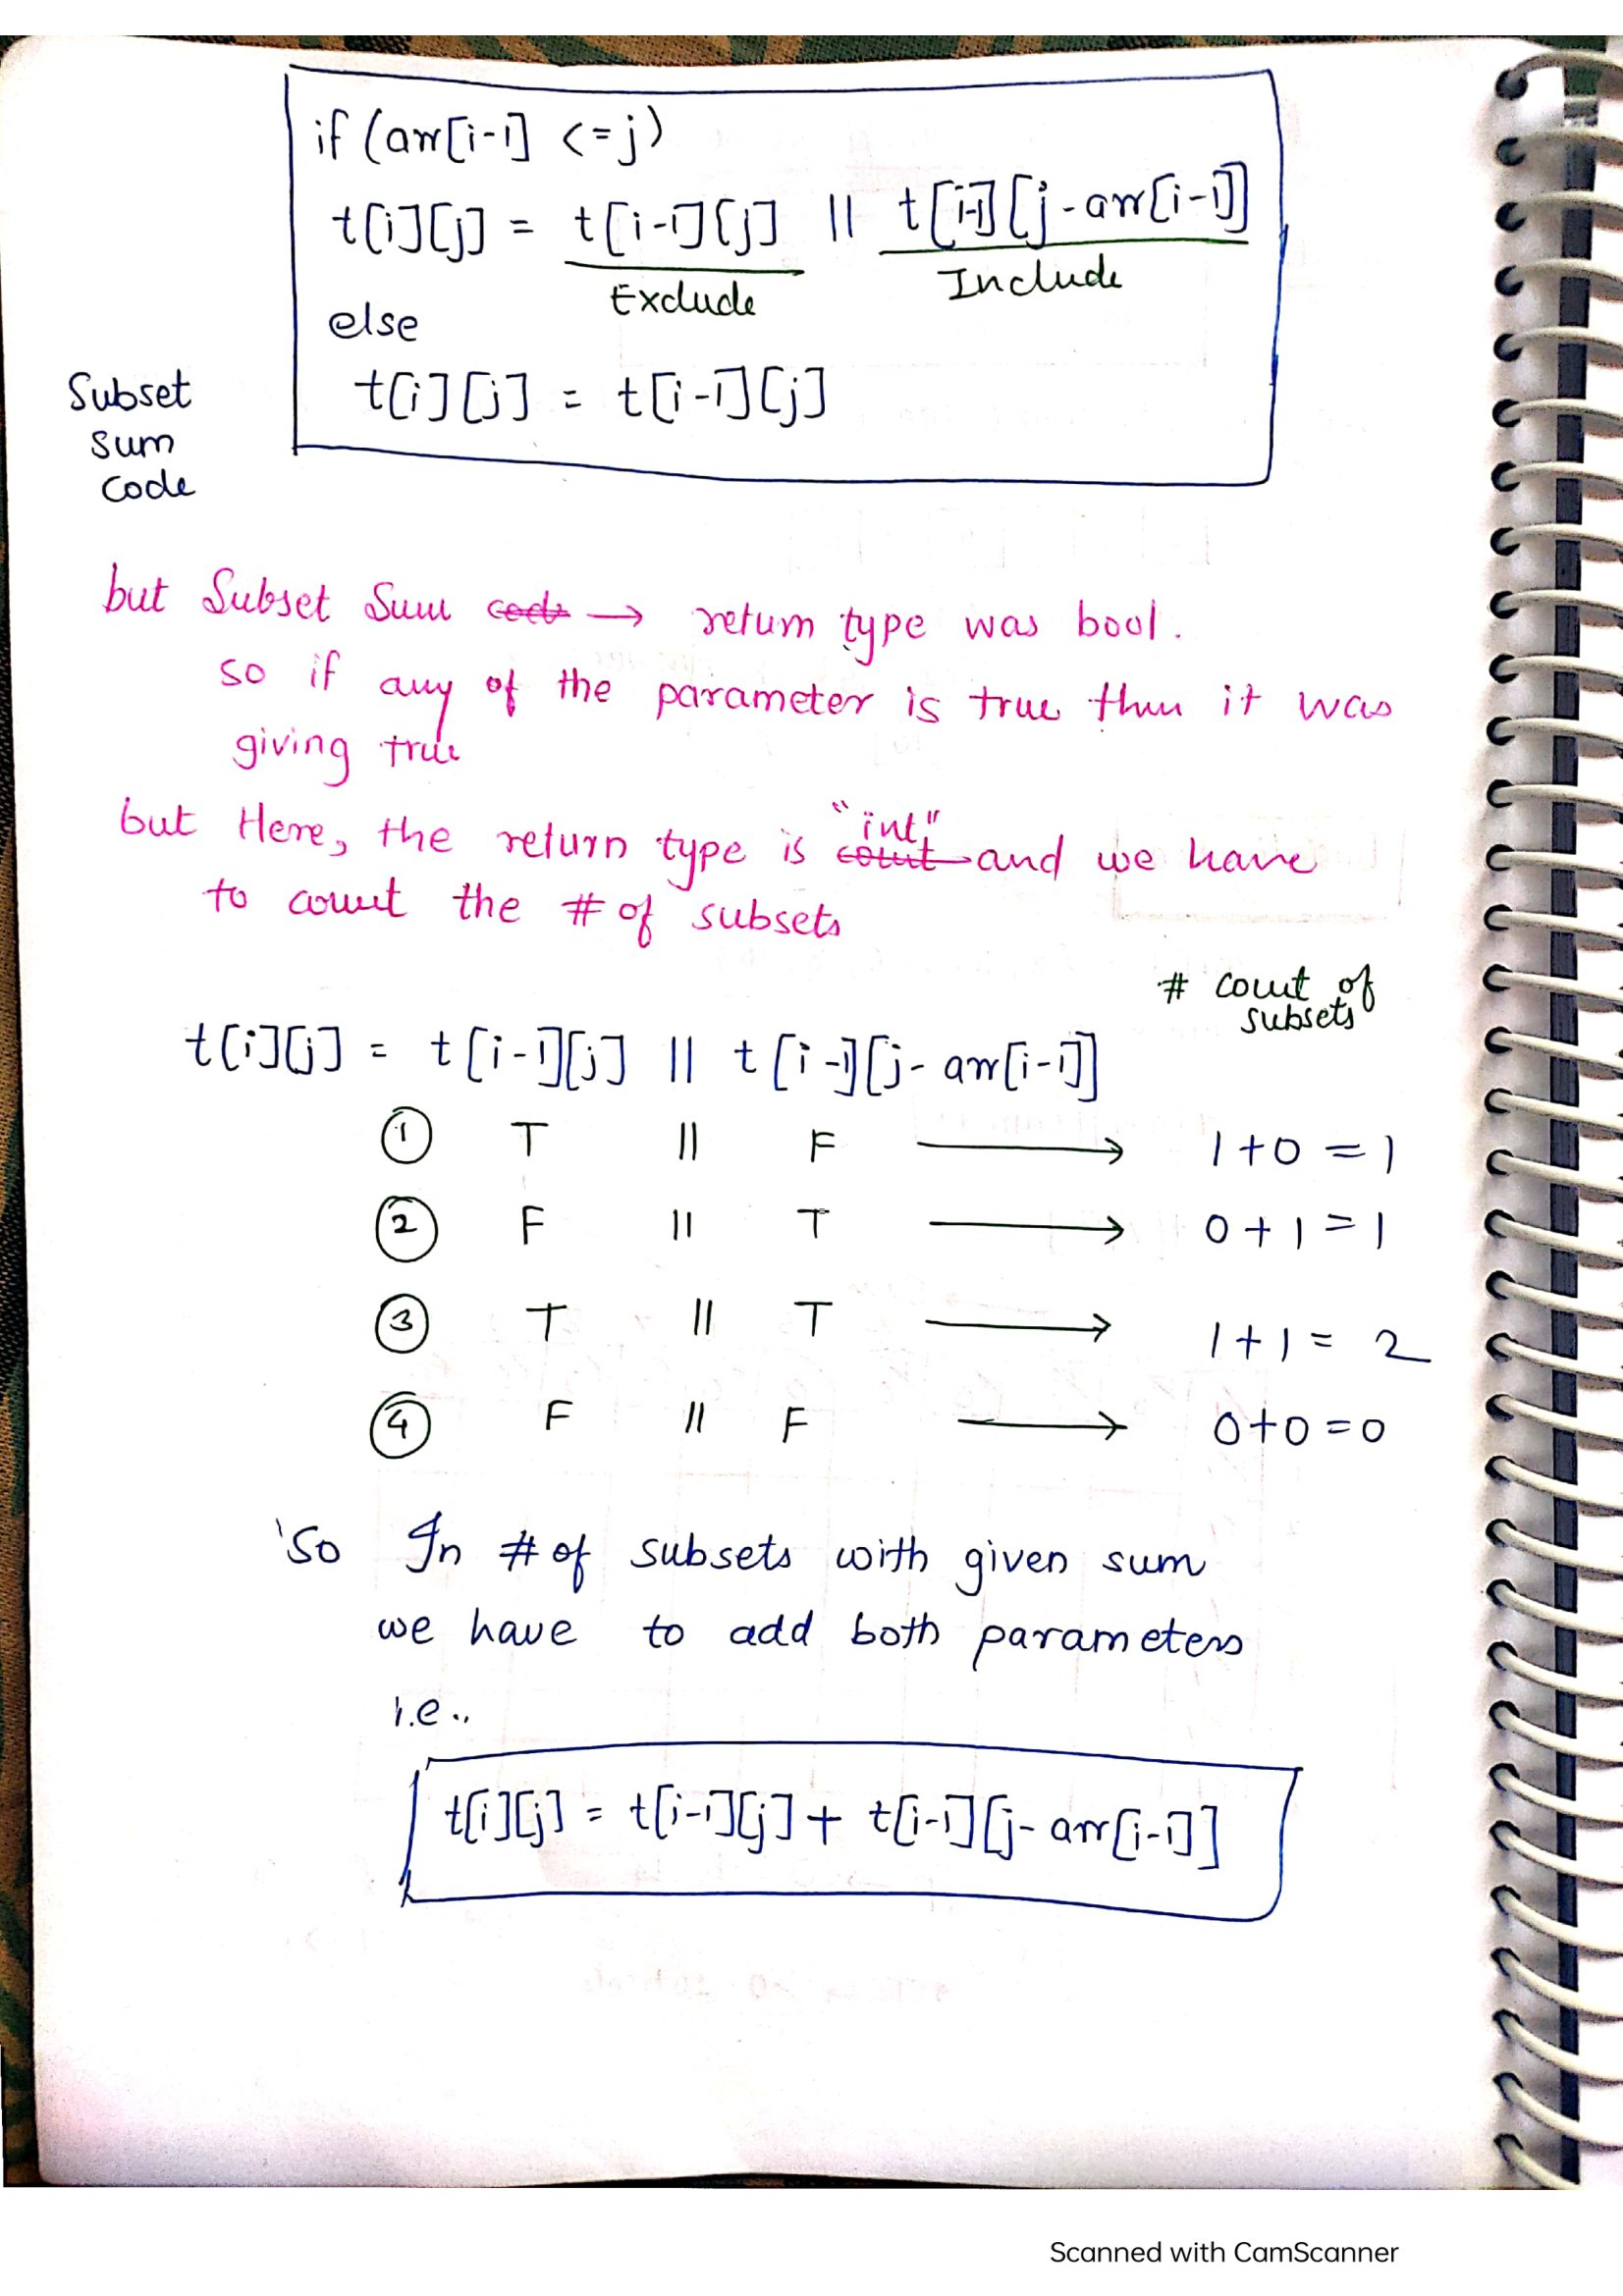 if (arr[i-1] <=j)
t[i][j] = t[i-1][j] || t[i-1][j-arr[i-1]]
Exclude Include
else
t[i][j] = t[i-1][j]
Subset
sum
code
but Subset Sum code → return type was bool.
so if any of the parameter is true then it was
giving true
"int"
but Here, the return type is count and we have
to count the # of subsets
# count of
subsets
t[i][j] = t[i-1][j] || t[i-1][j-arr[i-1]]
① T || F → 1+0 = 1
② F || T → 0+1=1
③ T || T → 1+1= 2
④ F || F → 0+0=0
So In # of subsets with given sum
we have to add both parameters
i.e..
t[i][j] = t[i-1][j] + t[i-1][j-arr[i-1]]
Scanned with CamScanner